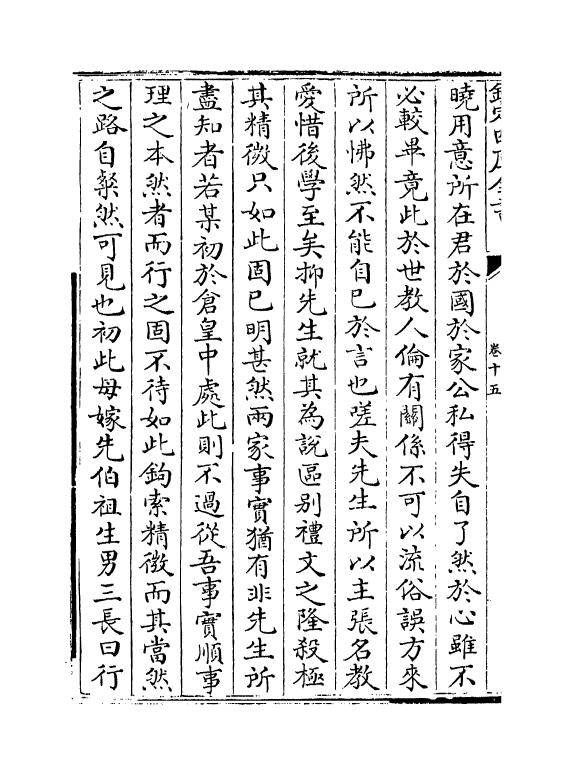 欽定四庫全書
卷十五
曉用意所在君於國於家公私得失自了然於心雖不
必較畢竟此於世教人倫有關係不可以流俗誤方來
所以怫然不能自已於言也嗟夫先生所以主張名教
愛惜後學至矣抑先生就其為說區别禮文之隆殺極
其精微只如此固已明甚然兩家事實猶有非先生所
盡知者若某初於倉皇中處此則不過從吾事實順事
理之本然者而行之固不待如此鉤索精微而其當然
之路自粲然可見也初此母嫁先伯祖生男三長曰行